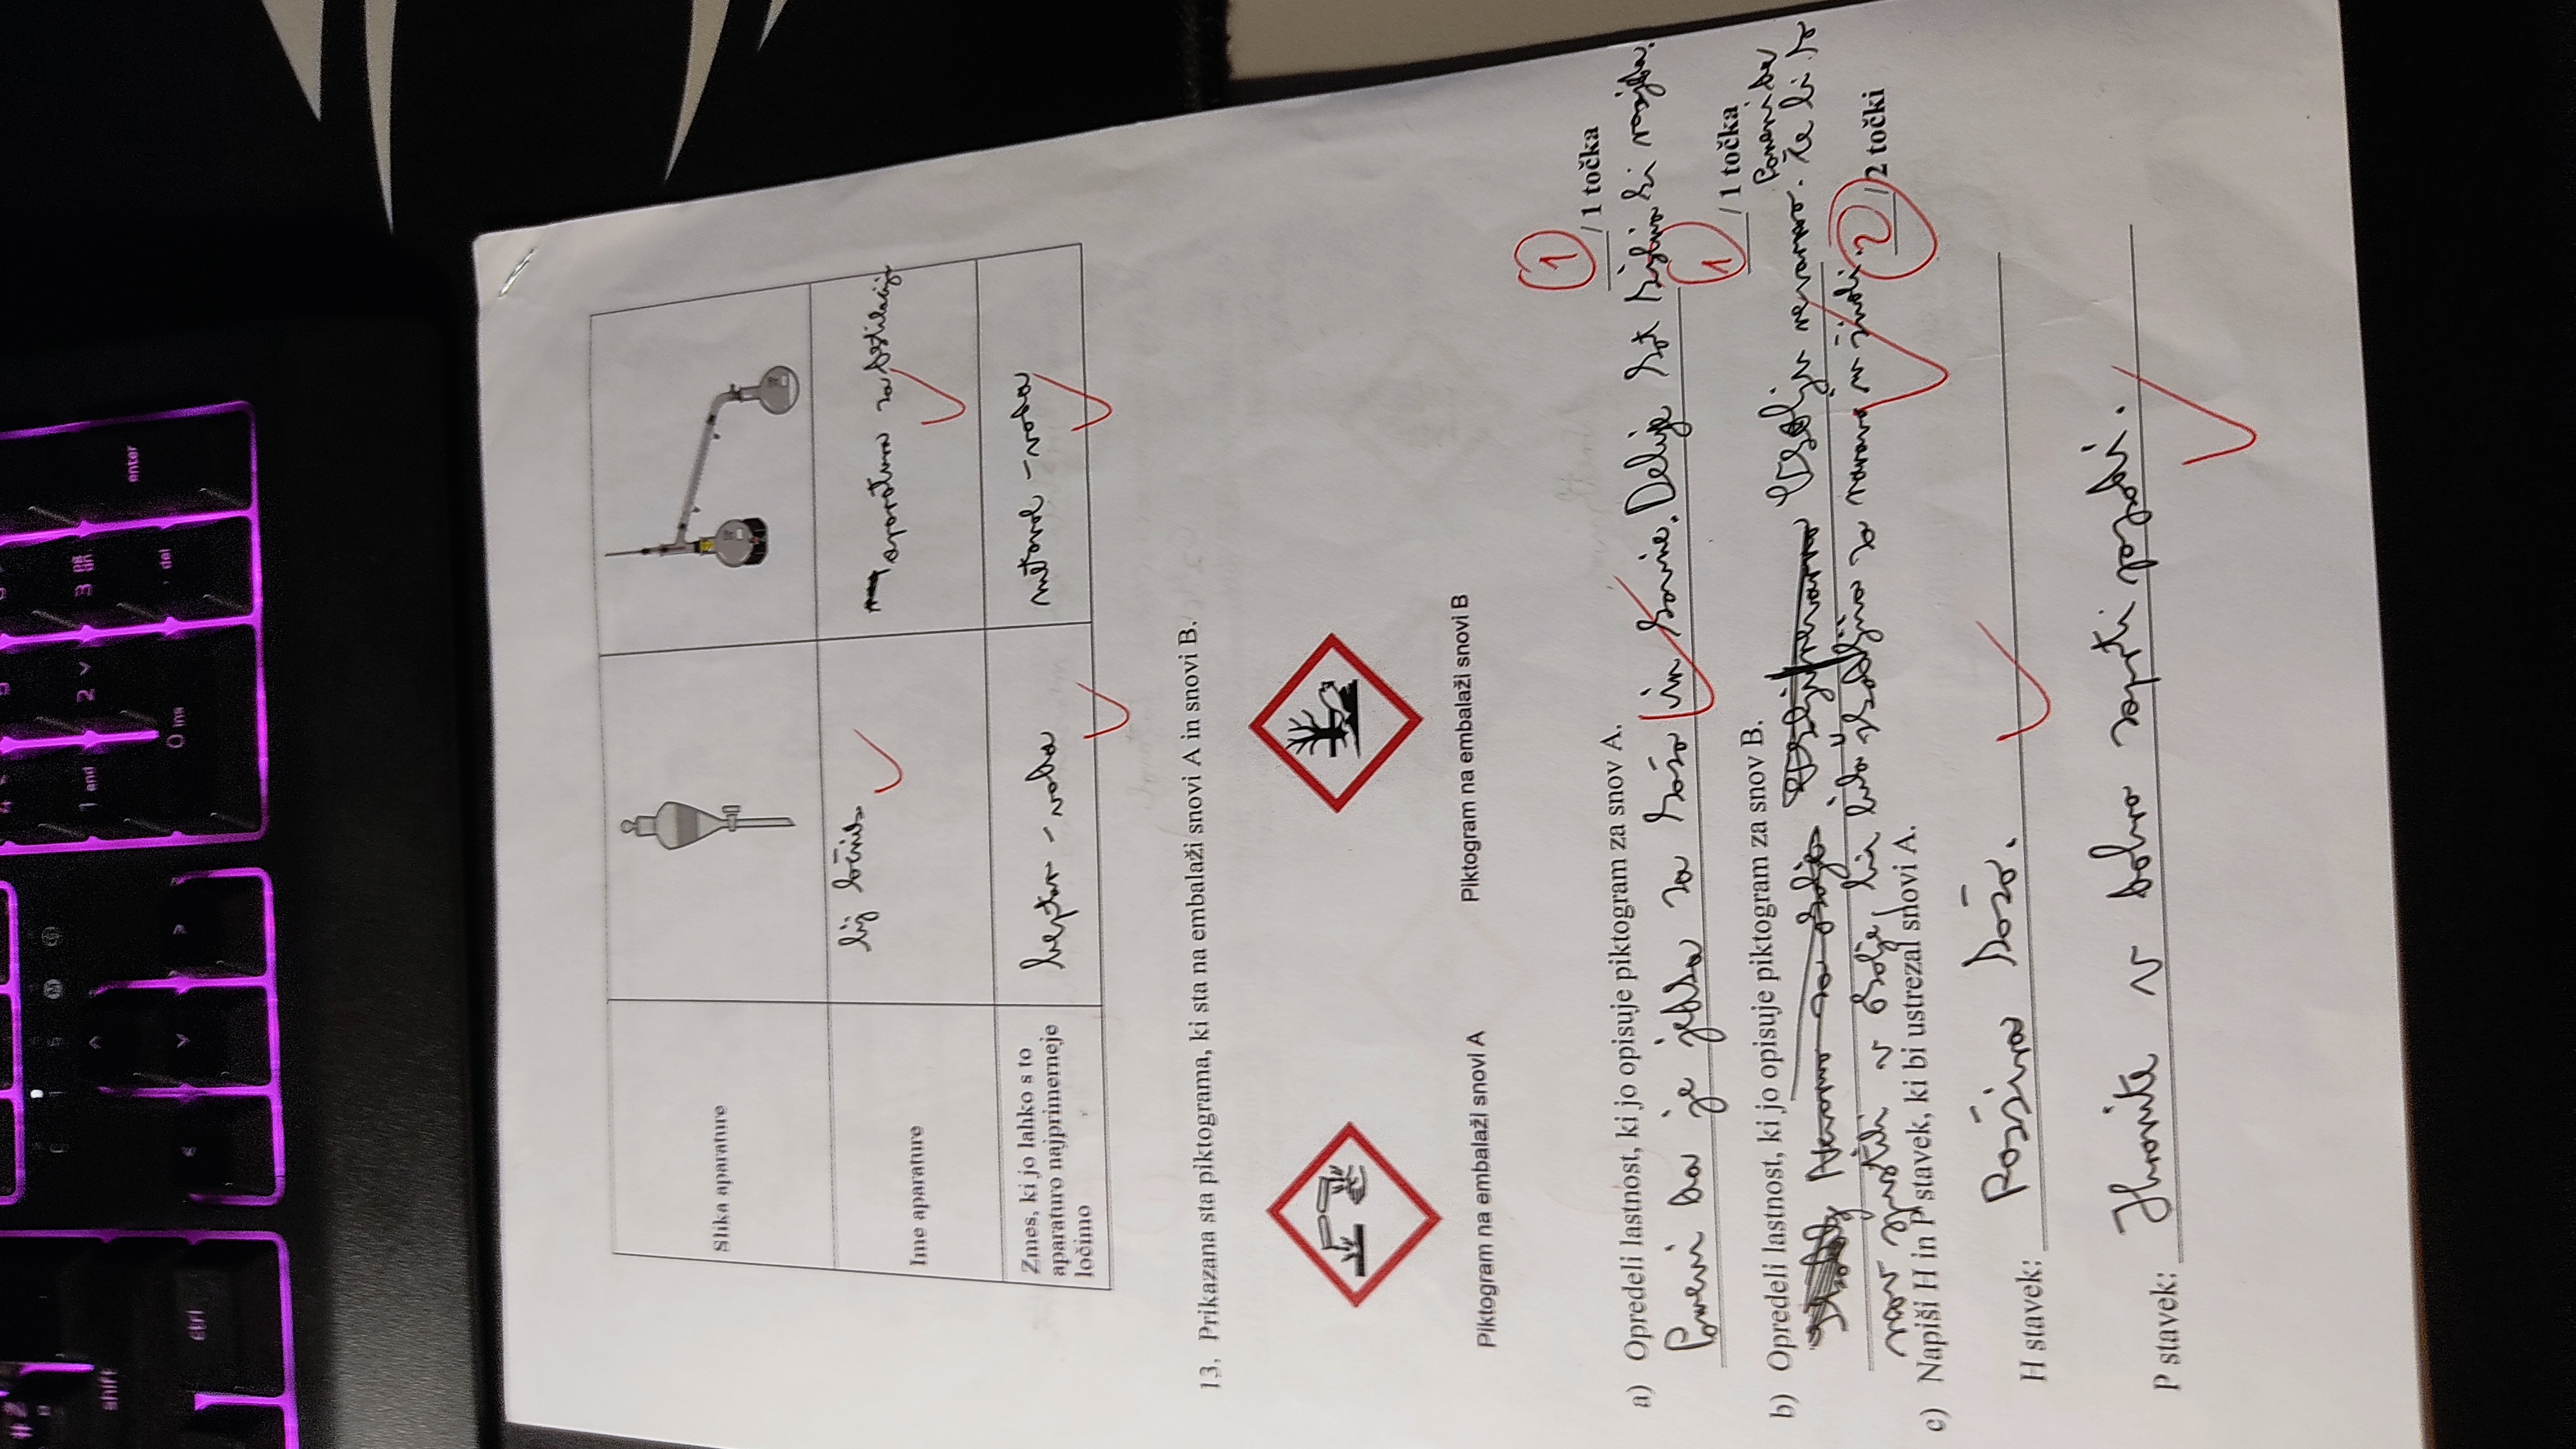 shift
ctrl
1 end
2
3
0 ins
del
enter
Slika aparature
Ime aparature
lij ločnik
aparatura za destilacijo
Zmes, ki jo lahko s to
aparaturo najprimerneje
ločimo
heptan - voda
metanol - voda
13. Prikazana sta piktograma, ki sta na embalaži snovi A in snovi B.
Piktogram na embalaži snovi A
Piktogram na embalaži snovi B
1
/ 1 točka
a) Opredeli lastnost, ki jo opisuje piktogram za snov A.
Pomeni da je jedka za kožo in kovine. Deluje kot kislina ki razjeda.
1
/ 1 točka
b) Opredeli lastnost, ki jo opisuje piktogram za snov B.
Nevarno za okolje Okolju nevarno Okolju nevarno. Pomeni da če bi to
snov spustili v okolje, bi bila škodljiva za naravo in živali.
2
/ 2 točki
c) Napiši H in P stavek, ki bi ustrezal snovi A.
H stavek: kožo.
P stavek: Hranite v dobro zaprti posodi.